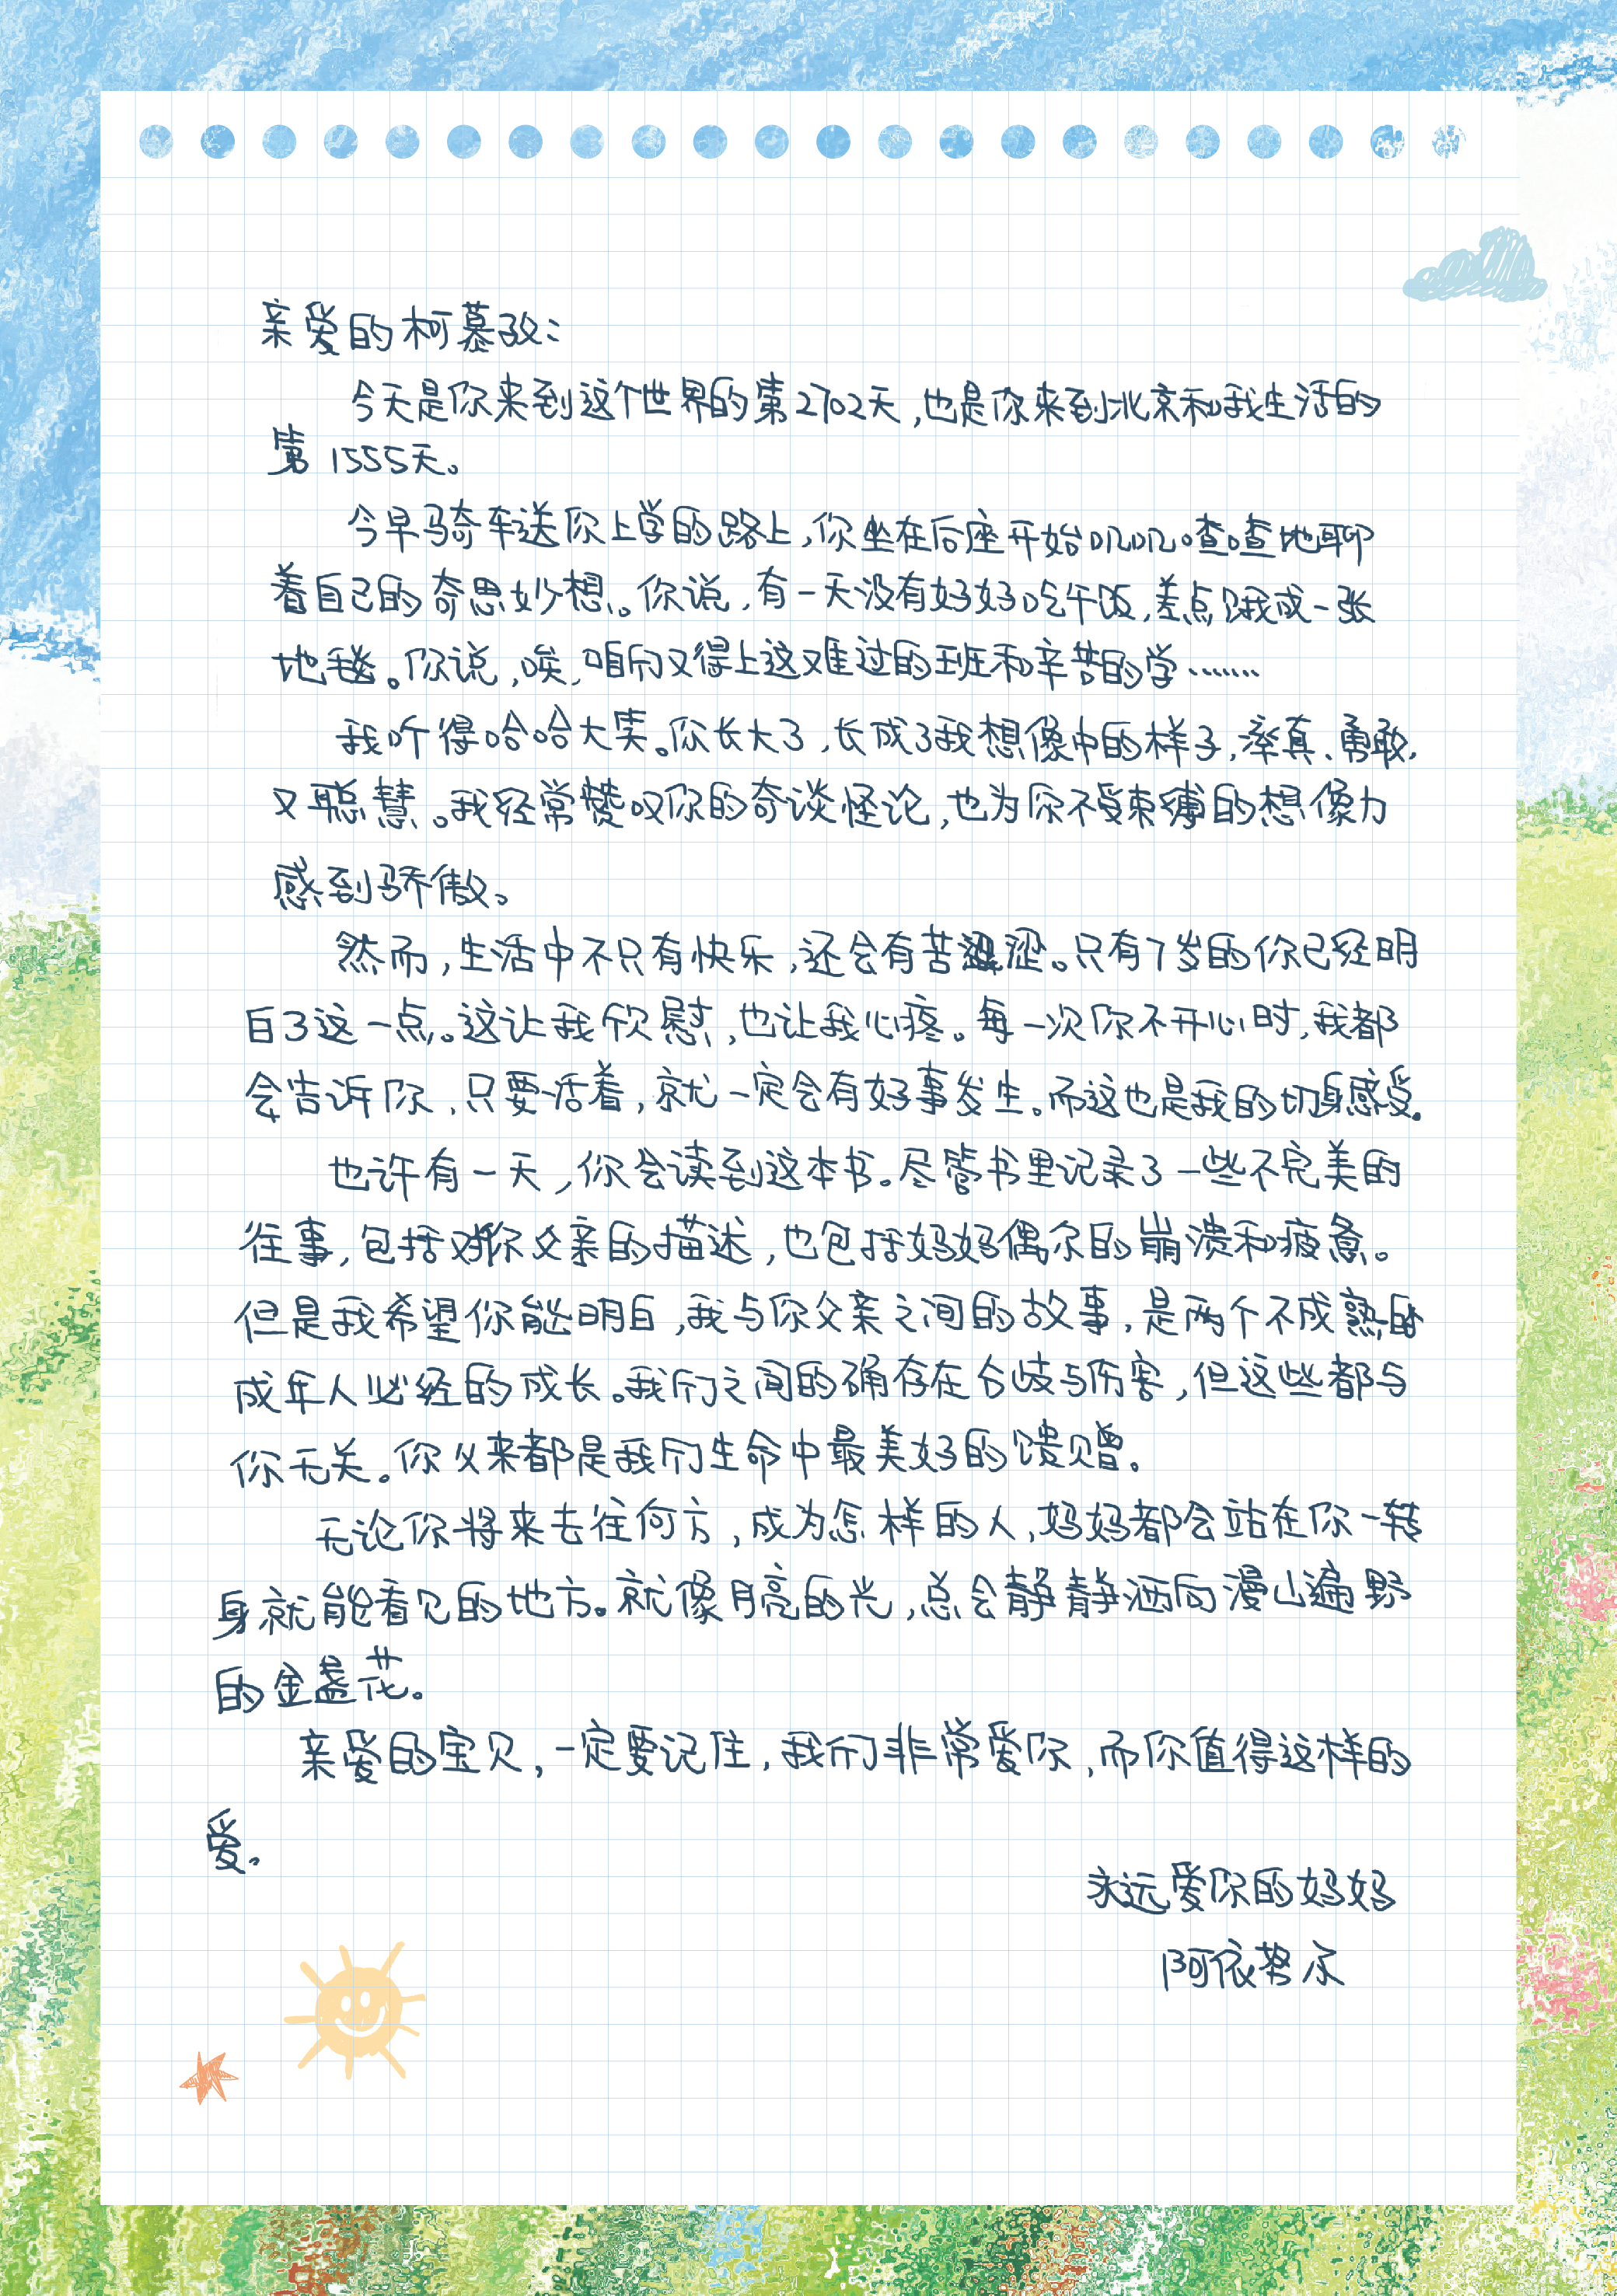 亲爱的柯慕孜：
今天是你来到这个世界的第2702天，也是你来到北京和我生活的
第1555天。
今早骑车送你上学的路上，你坐在后座开始叽叽喳喳地聊
着自己的奇思妙想。你说，有一天没有好好吃午饭，差点饿成一张
地毯。你说，唉，咱们又得上这又难过的班和辛苦的学……
我听得哈哈大笑。你长大了，长成了我想像中的样子，率真、勇敢，
又聪慧。我经常赞叹你的奇谈怪论，也为你不受束缚的想像力
感到骄傲。
然而，生活中不只有快乐，还会有苦涩。只有7岁的你已经明
白了这一点。这让我欣慰，也让我心疼。每一次你不开心时，我都
会告诉你，只要活着，就一定会有好事发生。而这也是我的切身感受。
也许有一天，你会读到这本书。尽管书里记录了一些不完美的
往事，包括对你父亲的描述，也包括妈妈偶尔的崩溃和疲惫。
但是我希望你能明白，我与你父亲之间的故事，是两个不成熟的
成年人必经的成长。我们之间的确存在分歧与伤害，但这些都与
你无关。你从来都是我们生命中最美好的馈赠。
无论你将来去往何方，成为怎样的人，妈妈都会站在你一转
身就能看见的地方。就像月亮的光，总会静静洒向漫山遍野
的金盏花。
亲爱的宝贝，一定要记住，我们非常爱你，而你值得这样的
爱。
永远爱你的妈妈
阿依努尔